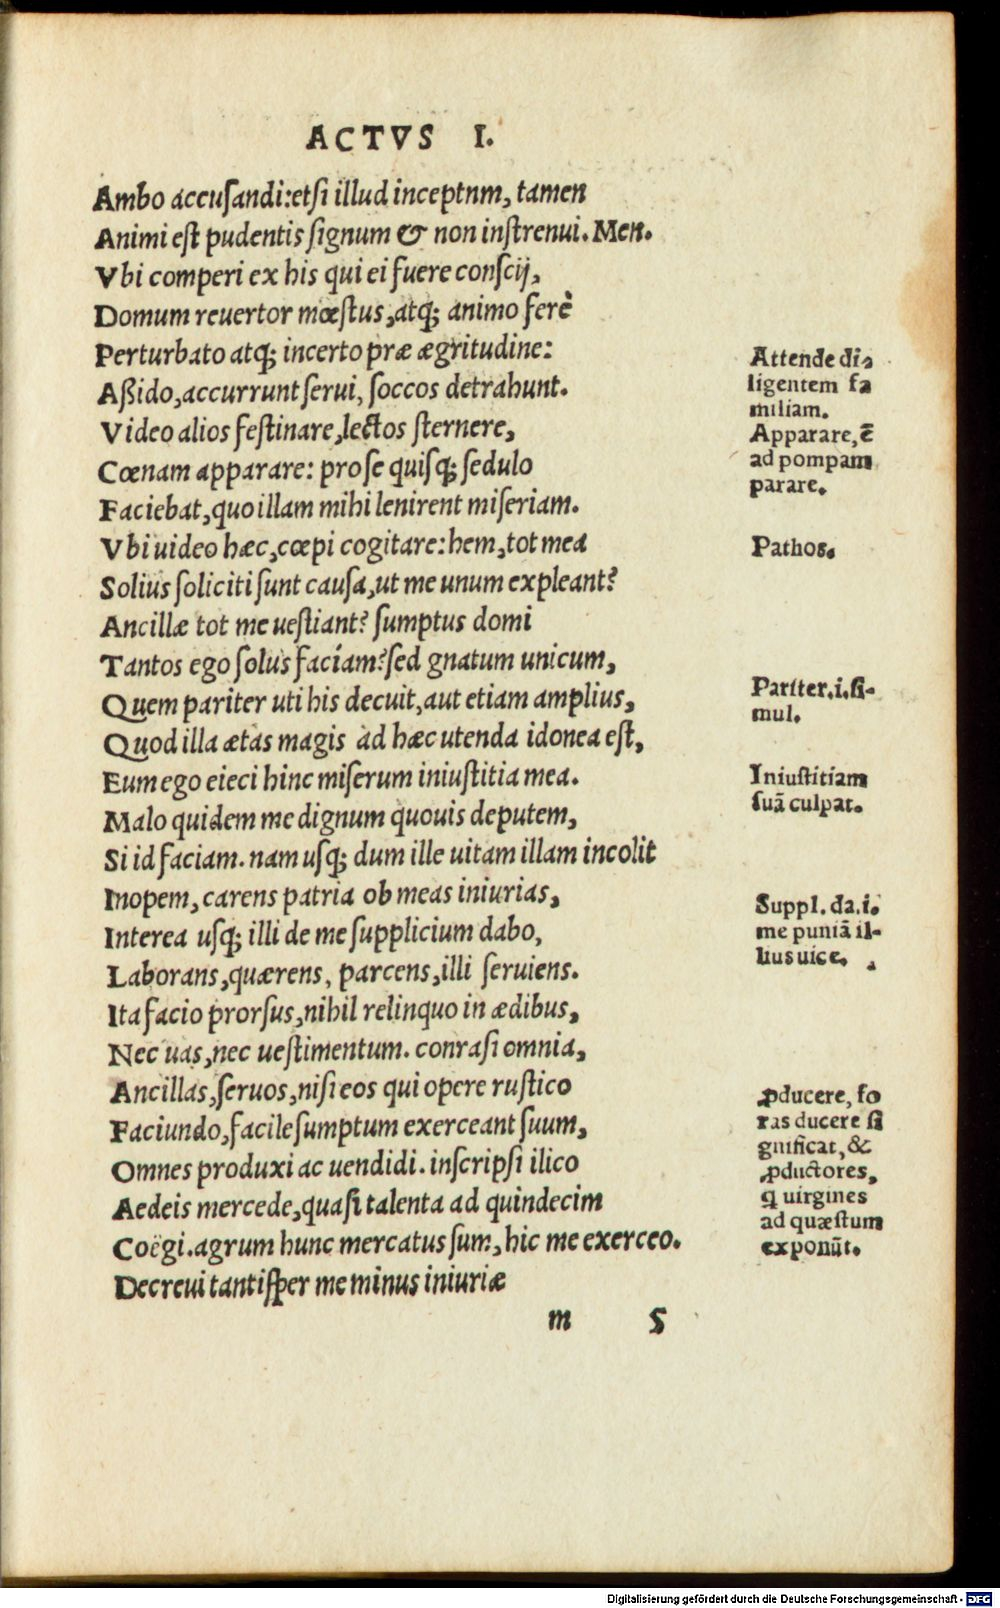 ACTVS I.
Ambo accusandi: etsi illud inceptnm, tamen
Animi est pudentis signum & non instrenui. Men.
Vbi comperi ex his qui ei fuere conscij,
Domum reuertor mœstus, atq; animo ferè
Perturbato atq; incerto præ ægritudine:
Aßido, accurrunt serui, soccos detrahunt.
Video alios festinare, lectos sternere,
Cœnam apparare: pro se quisq; sedulo
Faciebat, quo illam mihi lenirent miseriam.
Vbi uideo hæc, cœpi cogitare: hem, tot mea
Solius soliciti sunt causa, ut me unum expleant?
Ancillæ tot me uestiant? sumptus domi
Tantos ego solus faciam? sed gnatum unicum,
Quem pariter uti his decuit, aut etiam amplius,
Quod illa ætas magis ad hæc utenda idonea est,
Eum ego eieci hinc miserum iniustitia mea.
Malo quidem me dignum quouis deputem,
Si id faciam. nam usq; dum ille uitam illam incolit
Inopem, carens patria ob meas iniurias,
Interea usq; illi de me supplicium dabo,
Laborans, quærens, parcens, illi seruiens.
Ita facio prorsus, nihil relinquo in ædibus,
Nec uas, nec uestimentum. conrasi omnia,
Ancillas, seruos, nisi eos qui opere rustico
Faciundo, facile sumptum exerceant suum,
Omnes produxi ac uendidi. inscripsi ilico
Aedeis mercede, quasi talenta ad quindecim
Coëgi. agrum hunc mercatus sum, hic me exerceo.
Decreui tantisper me minus iniuriæ
m 5
Attende di-
ligentem fa
miliam.
Apparare, ē
ad pompam
parare.
Pathos.
Pariter. i. si-
mul.
Iniustitiam
suā culpat.
Suppl. da. i.
me puniā il-
lius uice.
ꝓducere, fo
ras ducere si
gnificat, &
ꝓductores,
q uirgines
ad quæstum
exponūt.
Digitalisierung gefördert durch die Deutsche Forschungsgemeinschaft - DFG